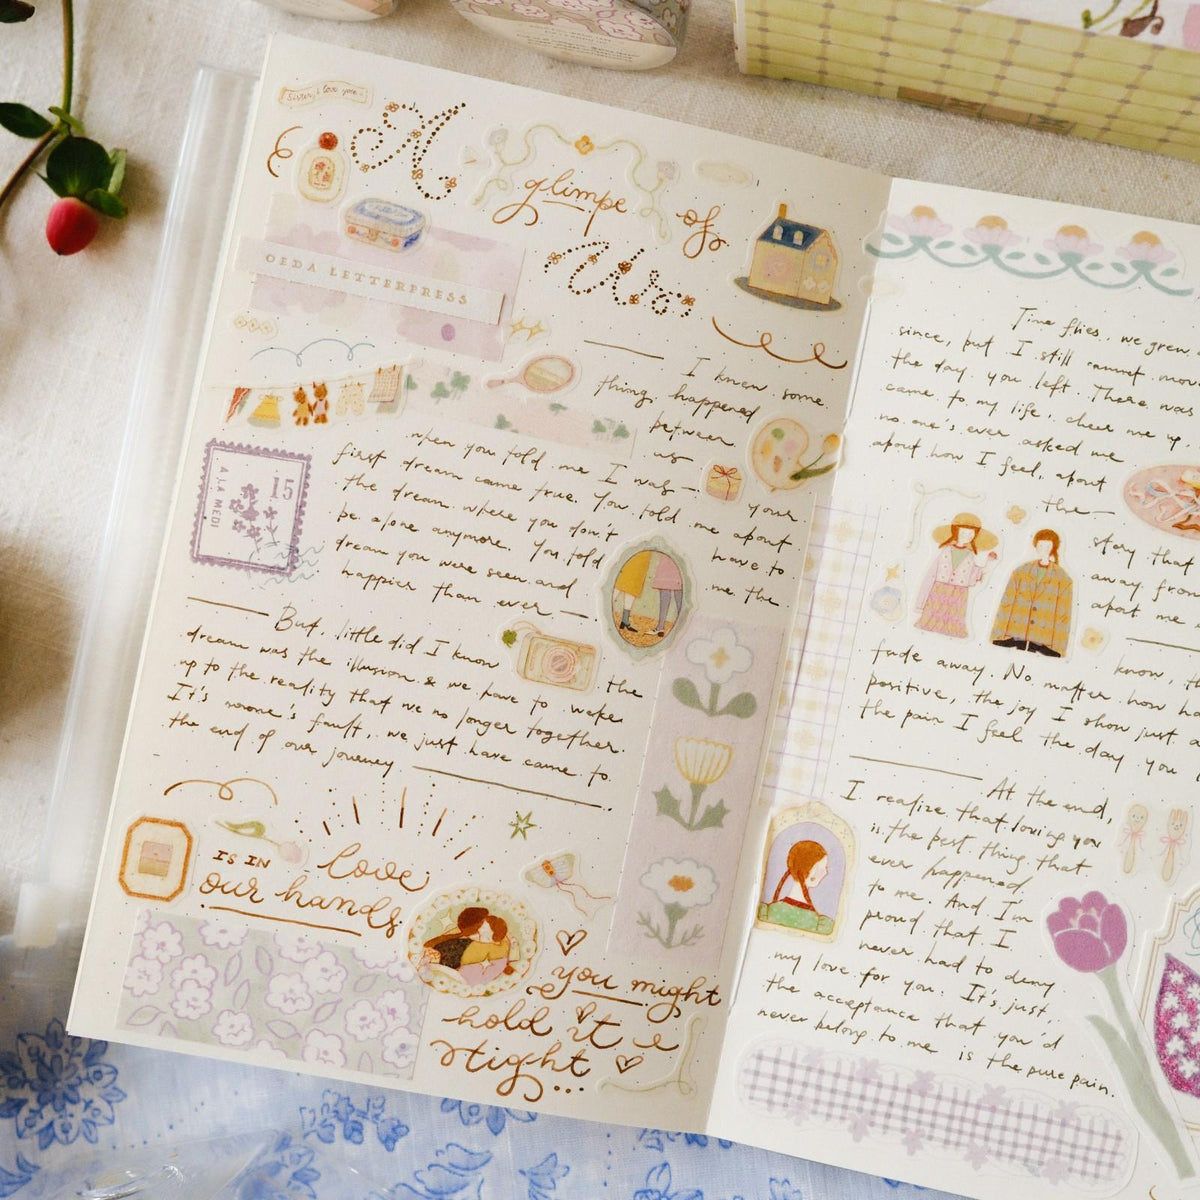 Sister, I love you
A
glimpse of
Us
OEDA LETTERPRESS
I knew some
thing happened
between
us
when you told me I was — your
first dream came true. You told me about
the dream where you don't have to
be alone anymore. You told me the
dream you were seen and
happier than ever —
15
A LA MEDI
But, little did I know the
dream was the illusion & we have to wake
up to the reality that we no longer together.
It's noone's fault, we just have came to
the end of our journey.
love
IS IN
our hands
you might
hold it
right ...
Time flies, we grew
since, but I still cannot mov
the day you left. There was
came to my life, cheer me up,
no one's ever asked me
about how I feel, about
the —
story that
away from
apart me
know, th
fade away. No matter how h
positive, the joy I show just a
the pain I feel the day you l
At the end,
I realize that loving you
is the best thing that
ever happened
to me. And I'm
proud that I
never had to deny
my love for you. It's just,
the acceptance that you'd
never belong to me is the pure pain.